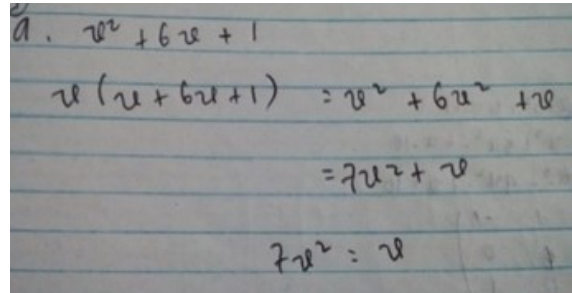 a. x² + 6x + 1
x (x + 6x + 1) = x² + 6x² + x
= 7x² + x
7x² = x